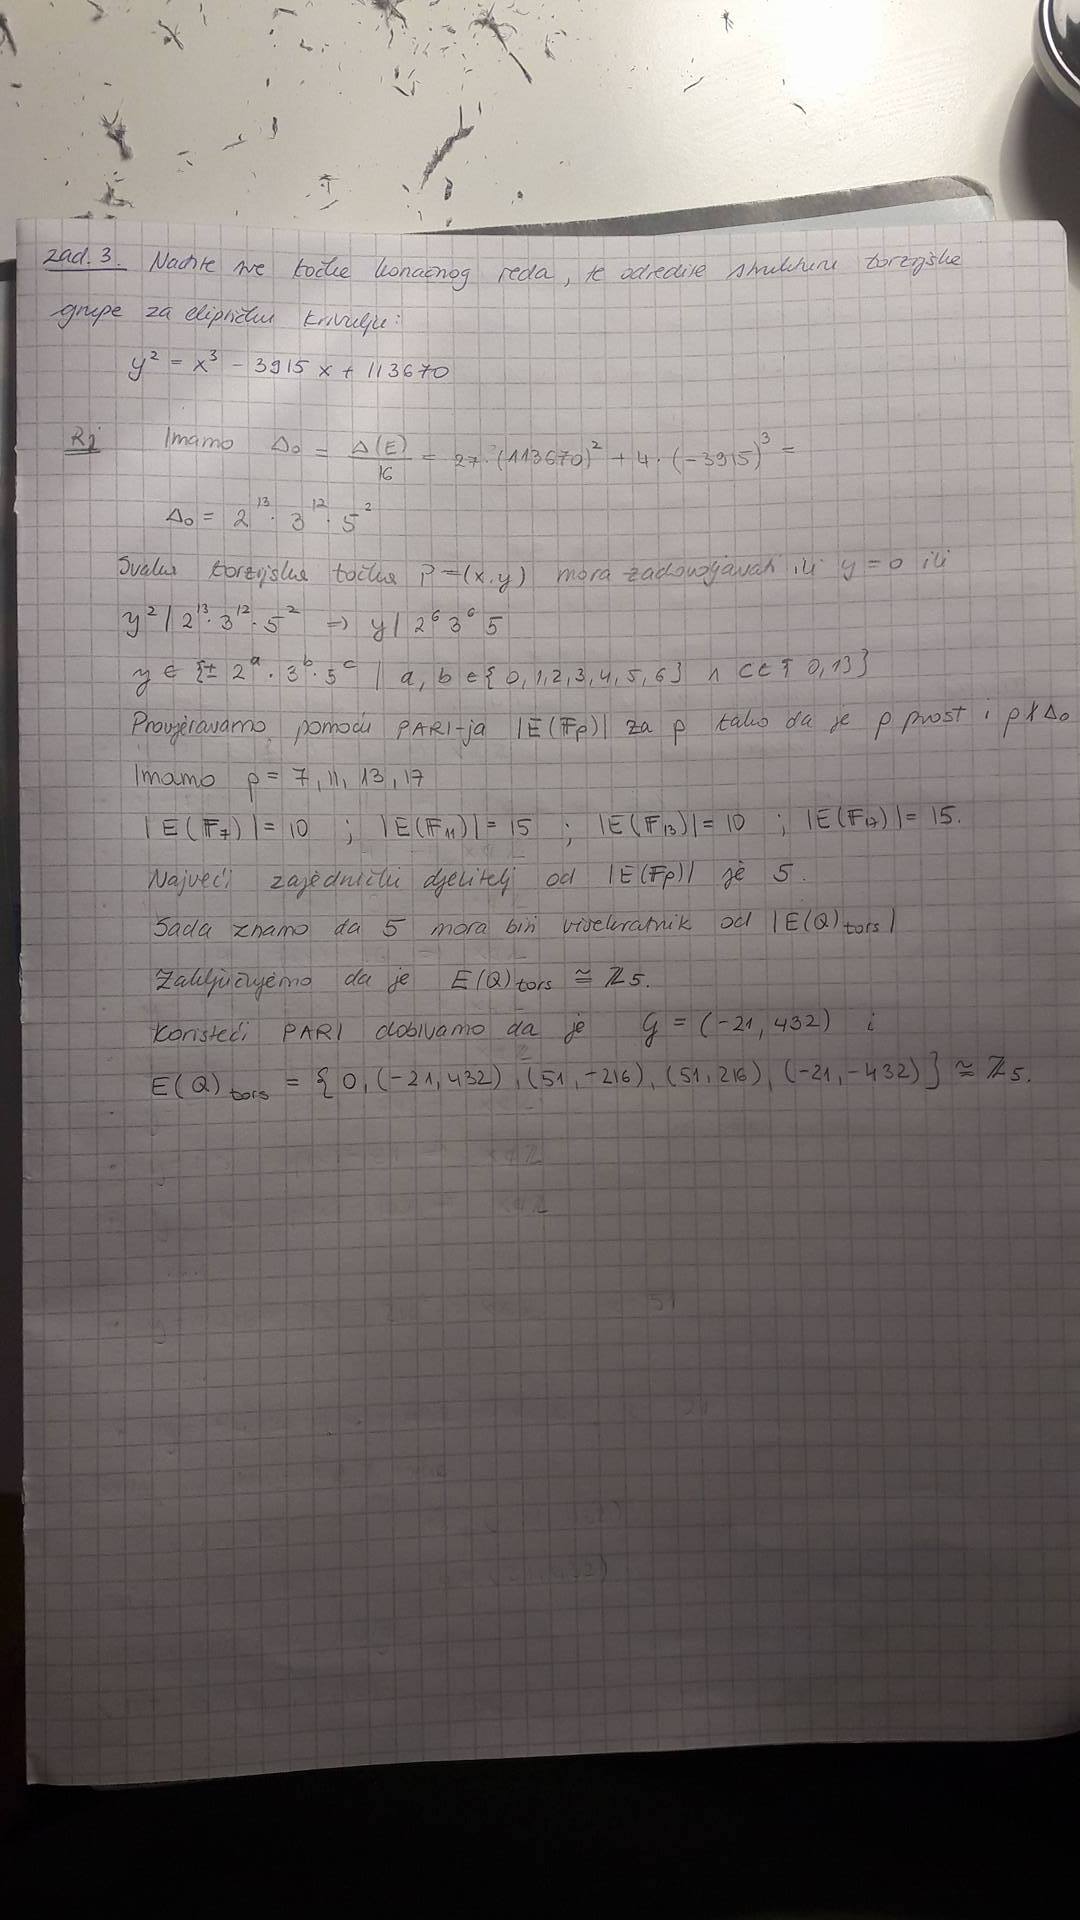 zad. 3. Nađite sve točke konačnog reda, te odredite strukturu torzijske
grupe za eliptičku krivulju:
y² = x³ - 3915x + 113670
Rj Imamo Δ₀ = Δ(E)/16 = 27·(113670)² + 4·(-3915)³ =
Δ₀ = 2¹³·3¹²·5²
Svaka torzijska točka P=(x,y) mora zadovoljavati ili y=0 ili
y² | 2¹³·3¹²·5² ⇒ y | 2⁶ 3⁶ 5
y ∈ {± 2ᵃ·3ᵇ·5ᶜ | a, b ∈ {0,1,2,3,4,5,6} ∧ c ∈ {0,1}}
Provjeravamo pomoću PARI-ja |E(𝔽p)| za p tako da je p prost i p∤Δ₀
Imamo p = 7, 11, 13, 17
|E(𝔽₇)| = 10 ; |E(𝔽₁₁)| = 15 ; |E(𝔽₁₃)| = 10 ; |E(𝔽₁₇)| = 15.
Najveći zajednički djelitelj od |E(𝔽p)| je 5.
Sada znamo da 5 mora biti višekratnik od |E(Q)tors|
Zaključujemo da je E(Q)tors ≅ ℤ₅.
Koristeći PARI dobivamo da je G = (-21, 432) i
E(Q)tors = {O, (-21,432), (51,-216), (51,216), (-21,-432)} ≅ ℤ₅.